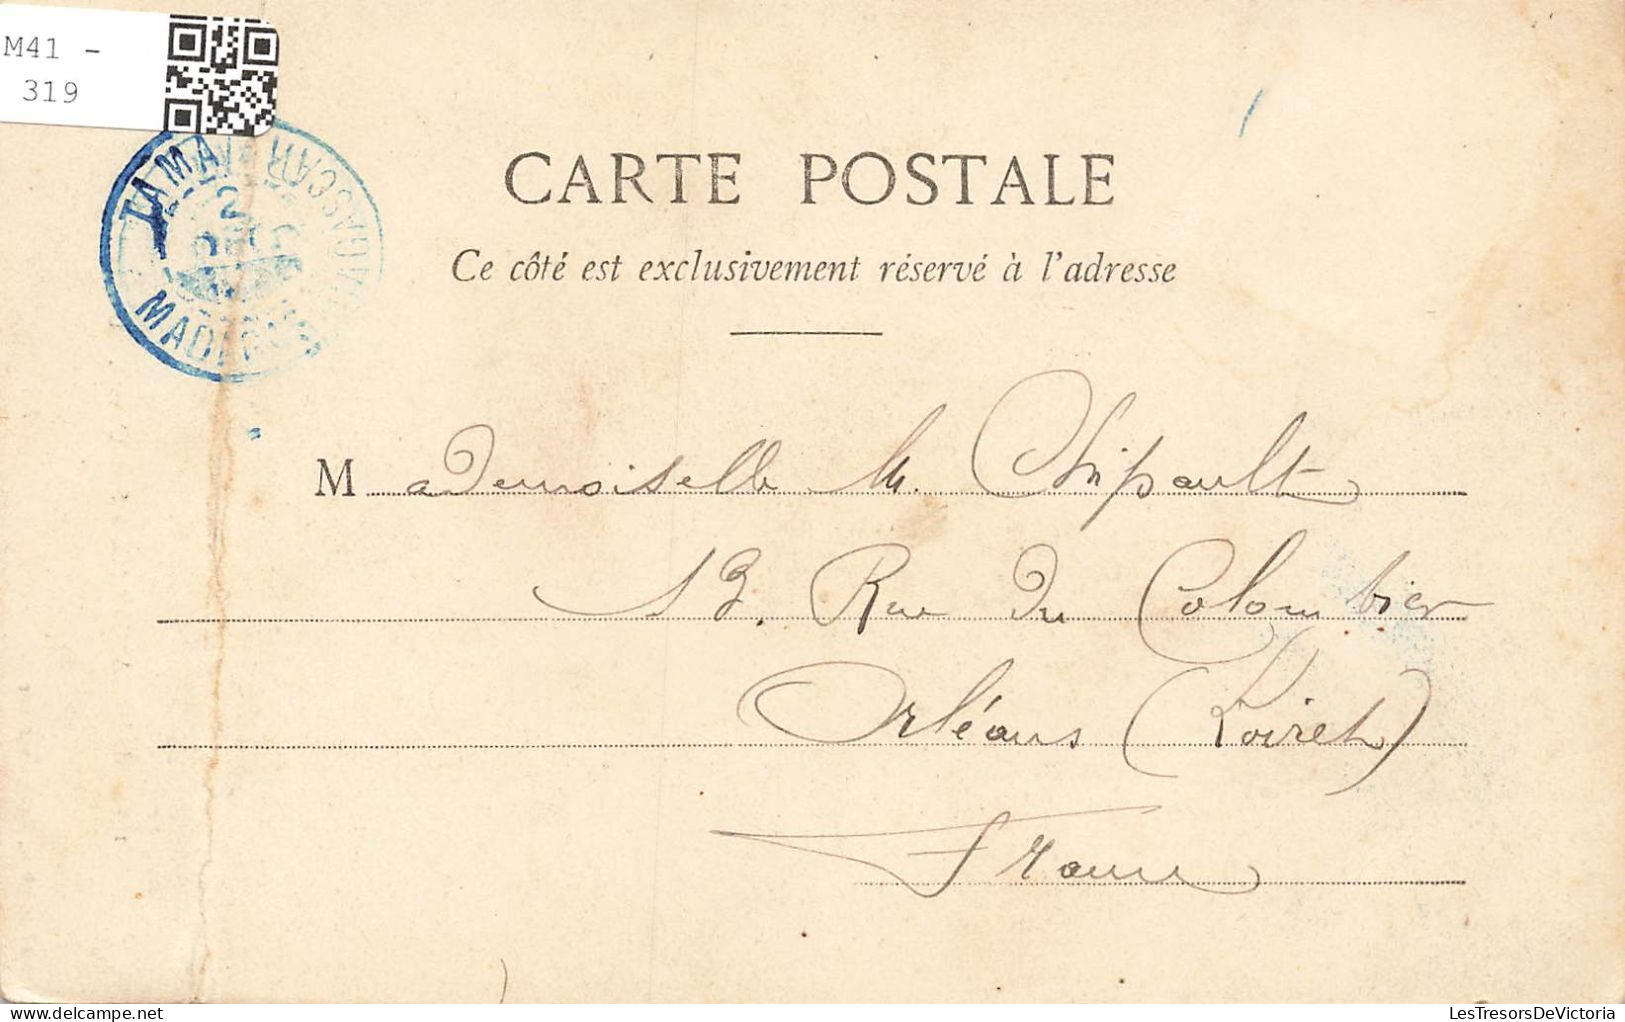 M41 -
319
TAMA
MADAGASCAR
CARTE POSTALE
Ce côté est exclusivement réservé à l'adresse
Mademoiselle M. Chipault
13. Rue du Colombier
Orléans (Loiret)
France
LesTresorsDeVictoria